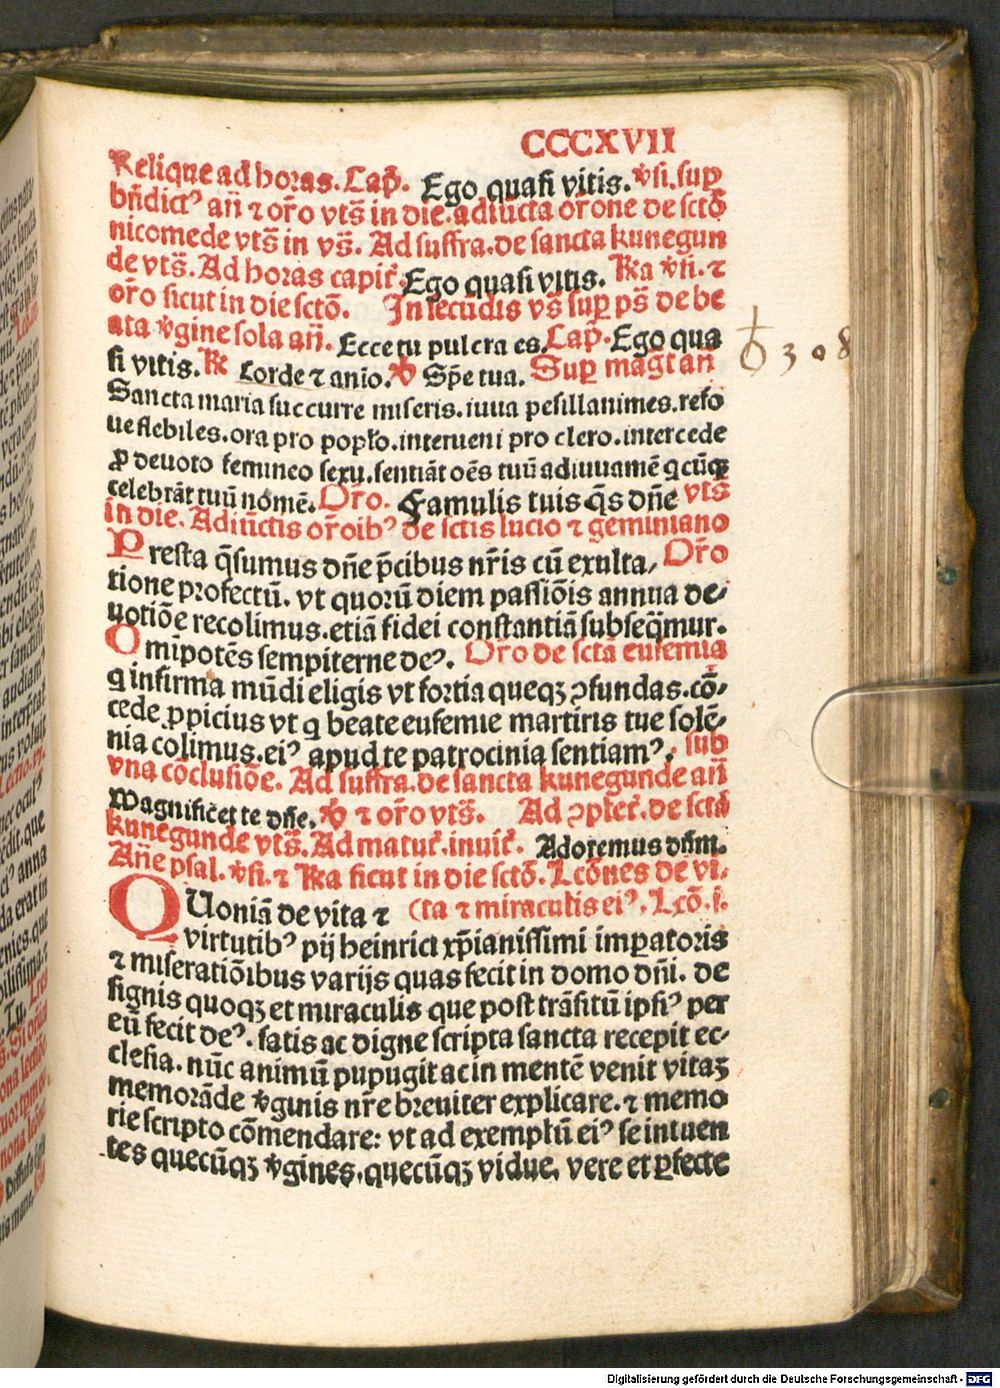 CCCXVII
Relique ad horas. Cap̄. Ego quasi vitis. ꝟsi. suꝑ
bn̄dictꝰ an̄ ⁊ or̄o vts̄ in die. adiūcta or̄one de sctō
nicomede vts̄ in vs̄. Ad suffra. de sancta kunegun
de vts̄. Ad horas capit̄. Ego quasi vitis. Rͣa ꝟsi. ⁊
or̄o sicut in die sctō. In secūdis vs̄ suꝑ ps̄ de be
ata ꝟgine sola an̄. Ecce tu pulcra es Cap̄. Ego qua
si vitis. ℞ Corde ⁊ anio. ꝟ Sp̄e tua. Suꝑ maḡt an̄
Sancta maria succurre miseris. iuua pesillanimes. refo
ue flebiles. ora pro popłō. interueni pro clero. intercede
ꝓ deuoto femineo sexu. sentiāt oēs tuū adiuuamē qͥcūqꝫ
celebrāt tuū nomē. Or̄o. Famulis tuis qs̄ dn̄e vts̄
in die. Adiūctis or̄oibꝰ de sctis lucio ⁊ geminiano
Presta q̄sumus dn̄e p̄cibus nr̄is cū exulta/ Or̄o
tione profectū. vt quorū diem passiōis annua de/
uotiōe recolimus. etiā fidei constantiā subseq̄mur.
Omīpotēs sempiterne deꝰ. Or̄o de sctā eufemia
q infirma mūdi eligis vt fortia queqꝫ ꝯfundas. cō/
cede ꝓpicius vt q beate eufemie martiris tue solē/
nia colimus. eiꝰ apud te patrocinia sentiamꝰ. sub
vna cōclusiōe. Ad suffra. de sancta kunegunde an̄
Magnificēt te dn̄e. ꝟ ⁊ or̄o vts̄. Ad ꝯplet̄. de sctā
kunegunde vts̄. Ad matut̄. inuit̄. Adoremus dn̄m.
An̄e psal. ꝟsi. ⁊ Rͣa sicut in die sctō. Lcōnes de vi/
QUoniā de vita ⁊ (ta ⁊ miraculis eiꝰ. Lcō. i.
virtutibꝰ pij heinrici xp̄ianissimi imꝑatoris
⁊ miseratiōibus varijs quas fecit in domo dn̄i. de
signis quoqꝫ et miraculis que post trāsitū ipsiꝰ per
eū fecit deꝰ. satis ac digne scripta sancta recepit ec/
clesia. nūc animū pupugit ac in mentē venit vitaꝫ
memorāde ꝟginis nr̄e breuiter explicare. ⁊ memo
rie scripto cōmendare: vt ad exemplū eiꝰ se intuen
tes quecūqꝫ ꝟgines. quecūqꝫ vidue. vere et ꝑfecte
308
Digitalisierung gefördert durch die Deutsche Forschungsgemeinschaft - DFG